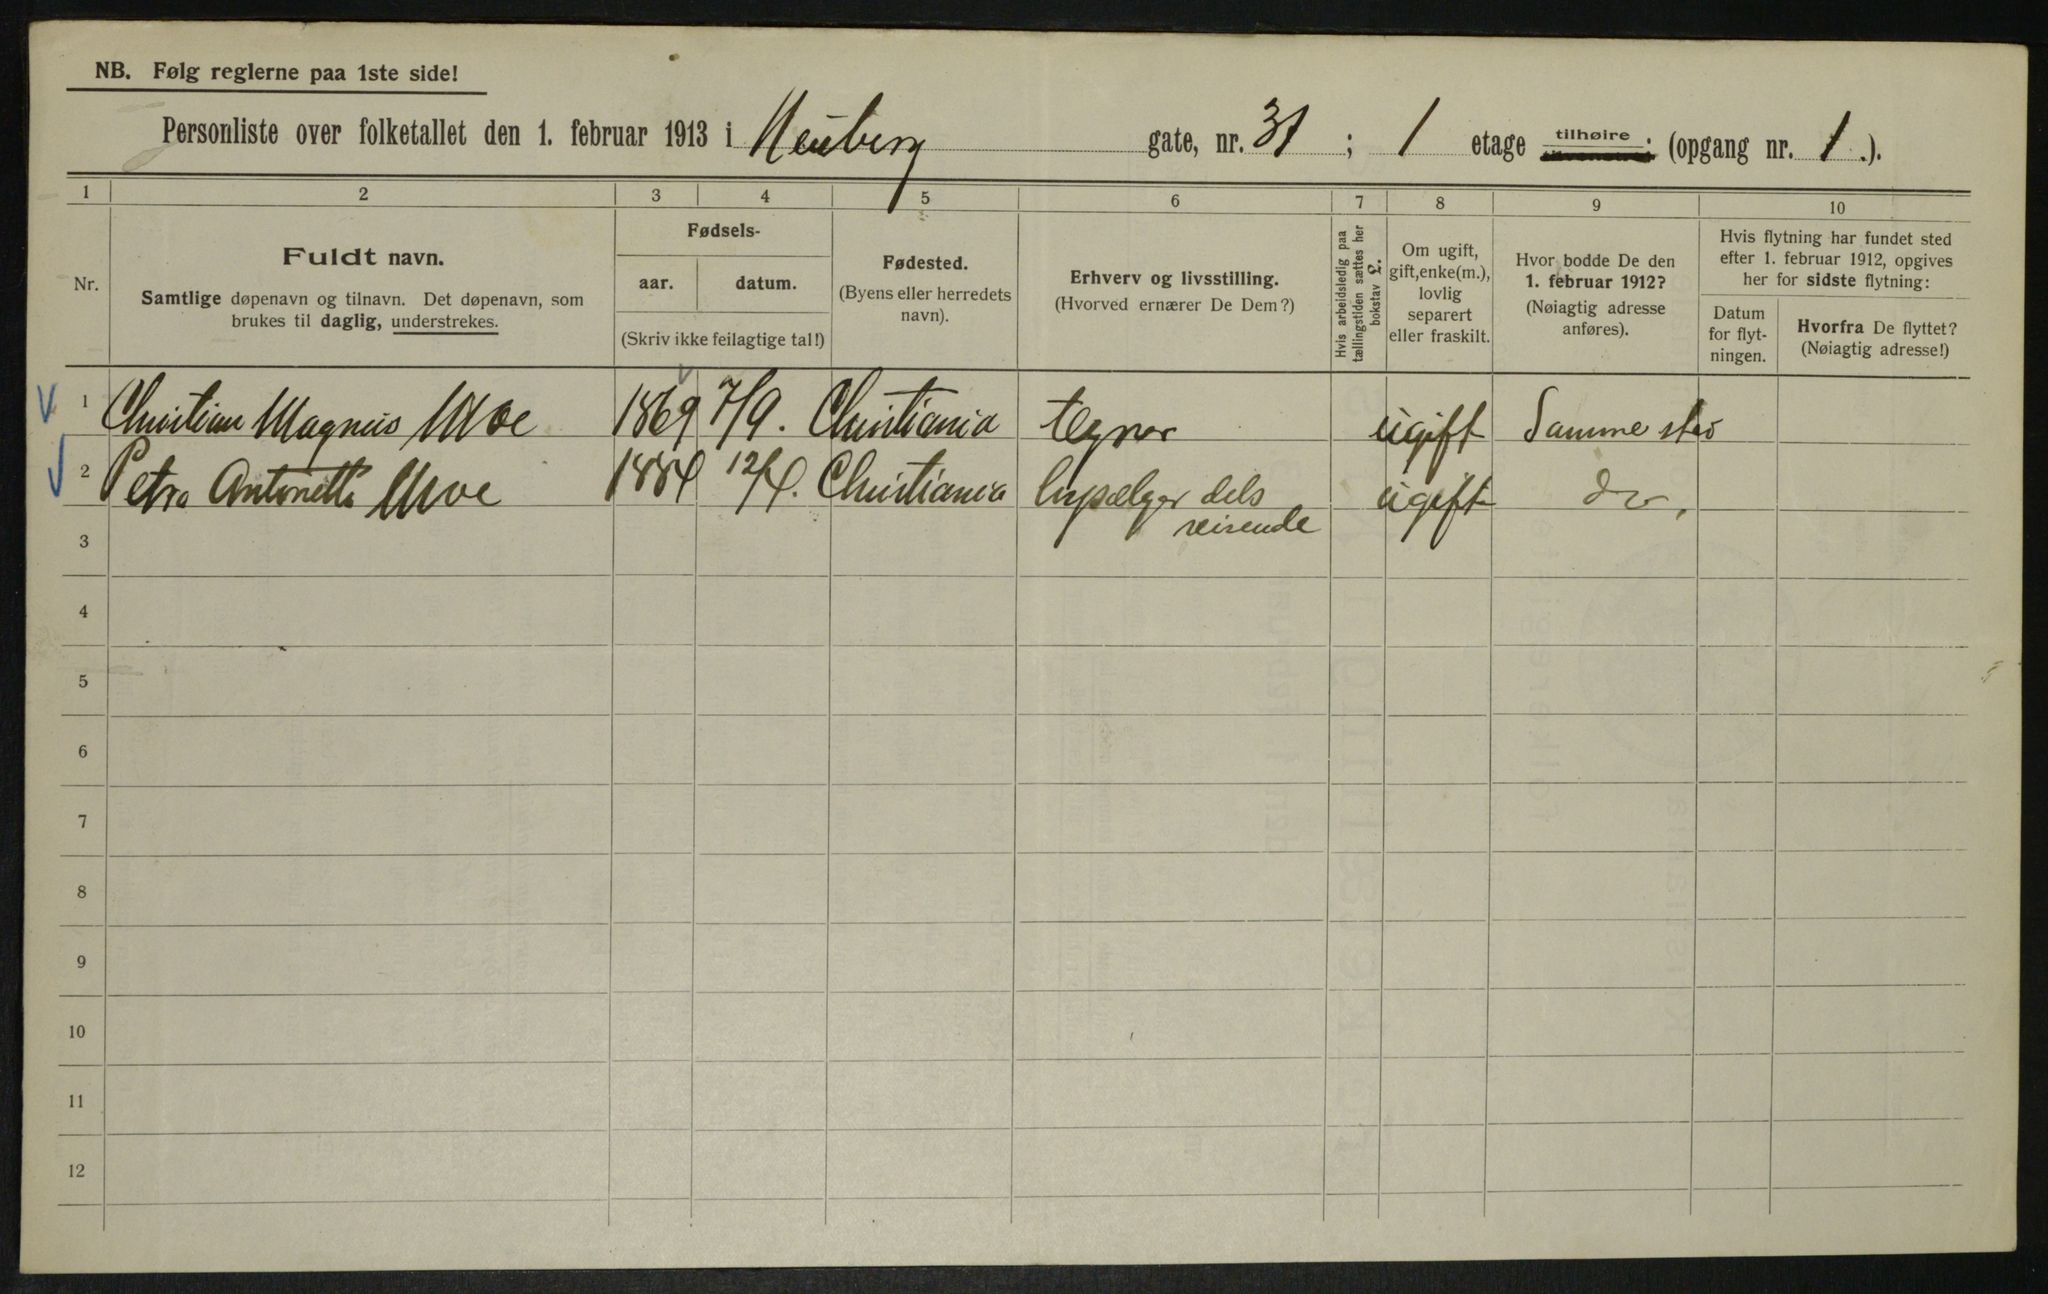 NB. Følg reglerne paa 1ste side!
Personliste over folketallet den 1. februar 1913 i Neuberg gate, nr. 31 ; 1 etage tilhøire (opgang nr. 1.).
1 2 3 4 5 6 7 8 9 10
Nr.
Fuldt navn.
Samtlige døpenavn og tilnavn. Det døpenavn, som
brukes til daglig, understrekes.
Fødsels-
aar. datum.
(Skriv ikke feilagtige tal!)
Fødested.
(Byens eller herredets
navn).
Erhverv og livsstilling.
(Hvorved ernærer De Dem?)
Hvis arbeidsledig paa
tællingstiden sættes her
bokstav L.
Om ugift,
gift, enke(m.),
lovlig
separert
eller fraskilt.
Hvor bodde De den
1. februar 1912?
(Nøiagtig adresse
anføres).
Hvis flytning har fundet sted
efter 1. februar 1912, opgives
her for sidste flytning:
Datum
for flyt-
ningen.
Hvorfra De flyttet?
(Nøiagtig adresse!)
1 Christian Magnus Moe 1869 7/9. Christiania tegner ugift Samme sted
2 Petra Antonette Moe 1884 12/4. Christiania dels ugift do,
reisende
3
4
5
6
7
8
9
10
11
12